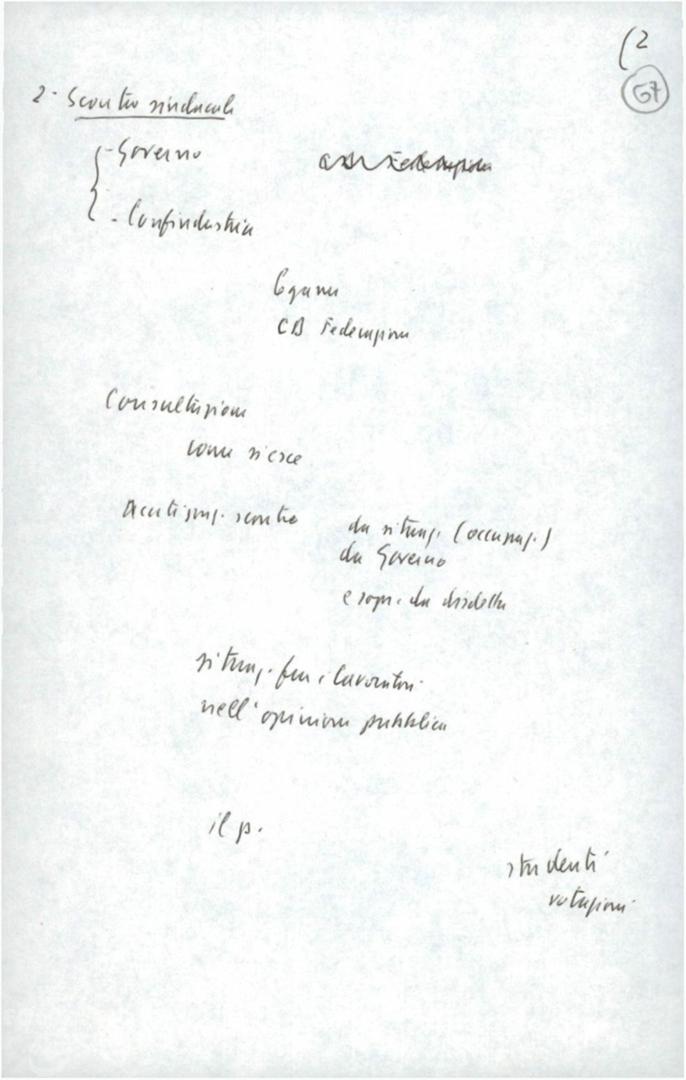 (2
67
2- Scontro sindacale
- Governo
- Confindustria
Legami
CD Federazione
Consultazione
come si esce
Acutizzaz. scontro
da situaz. (occupaz.)
da Governo
e sopr. da disdetta
situaz. fra i lavoratori
nell'opinione pubblica
il p.
studenti
votazioni